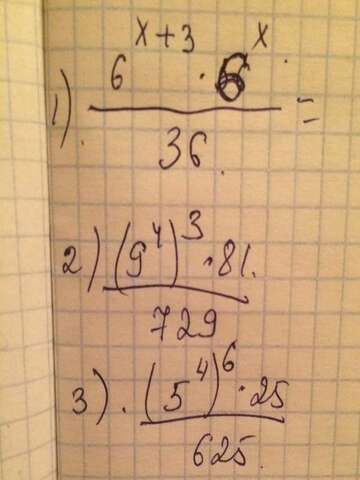 1) 6^(x+3) · 6^x =
36
2) (9^4)^3 · 81.
729
3) . (5^4)^6 · 25
625.